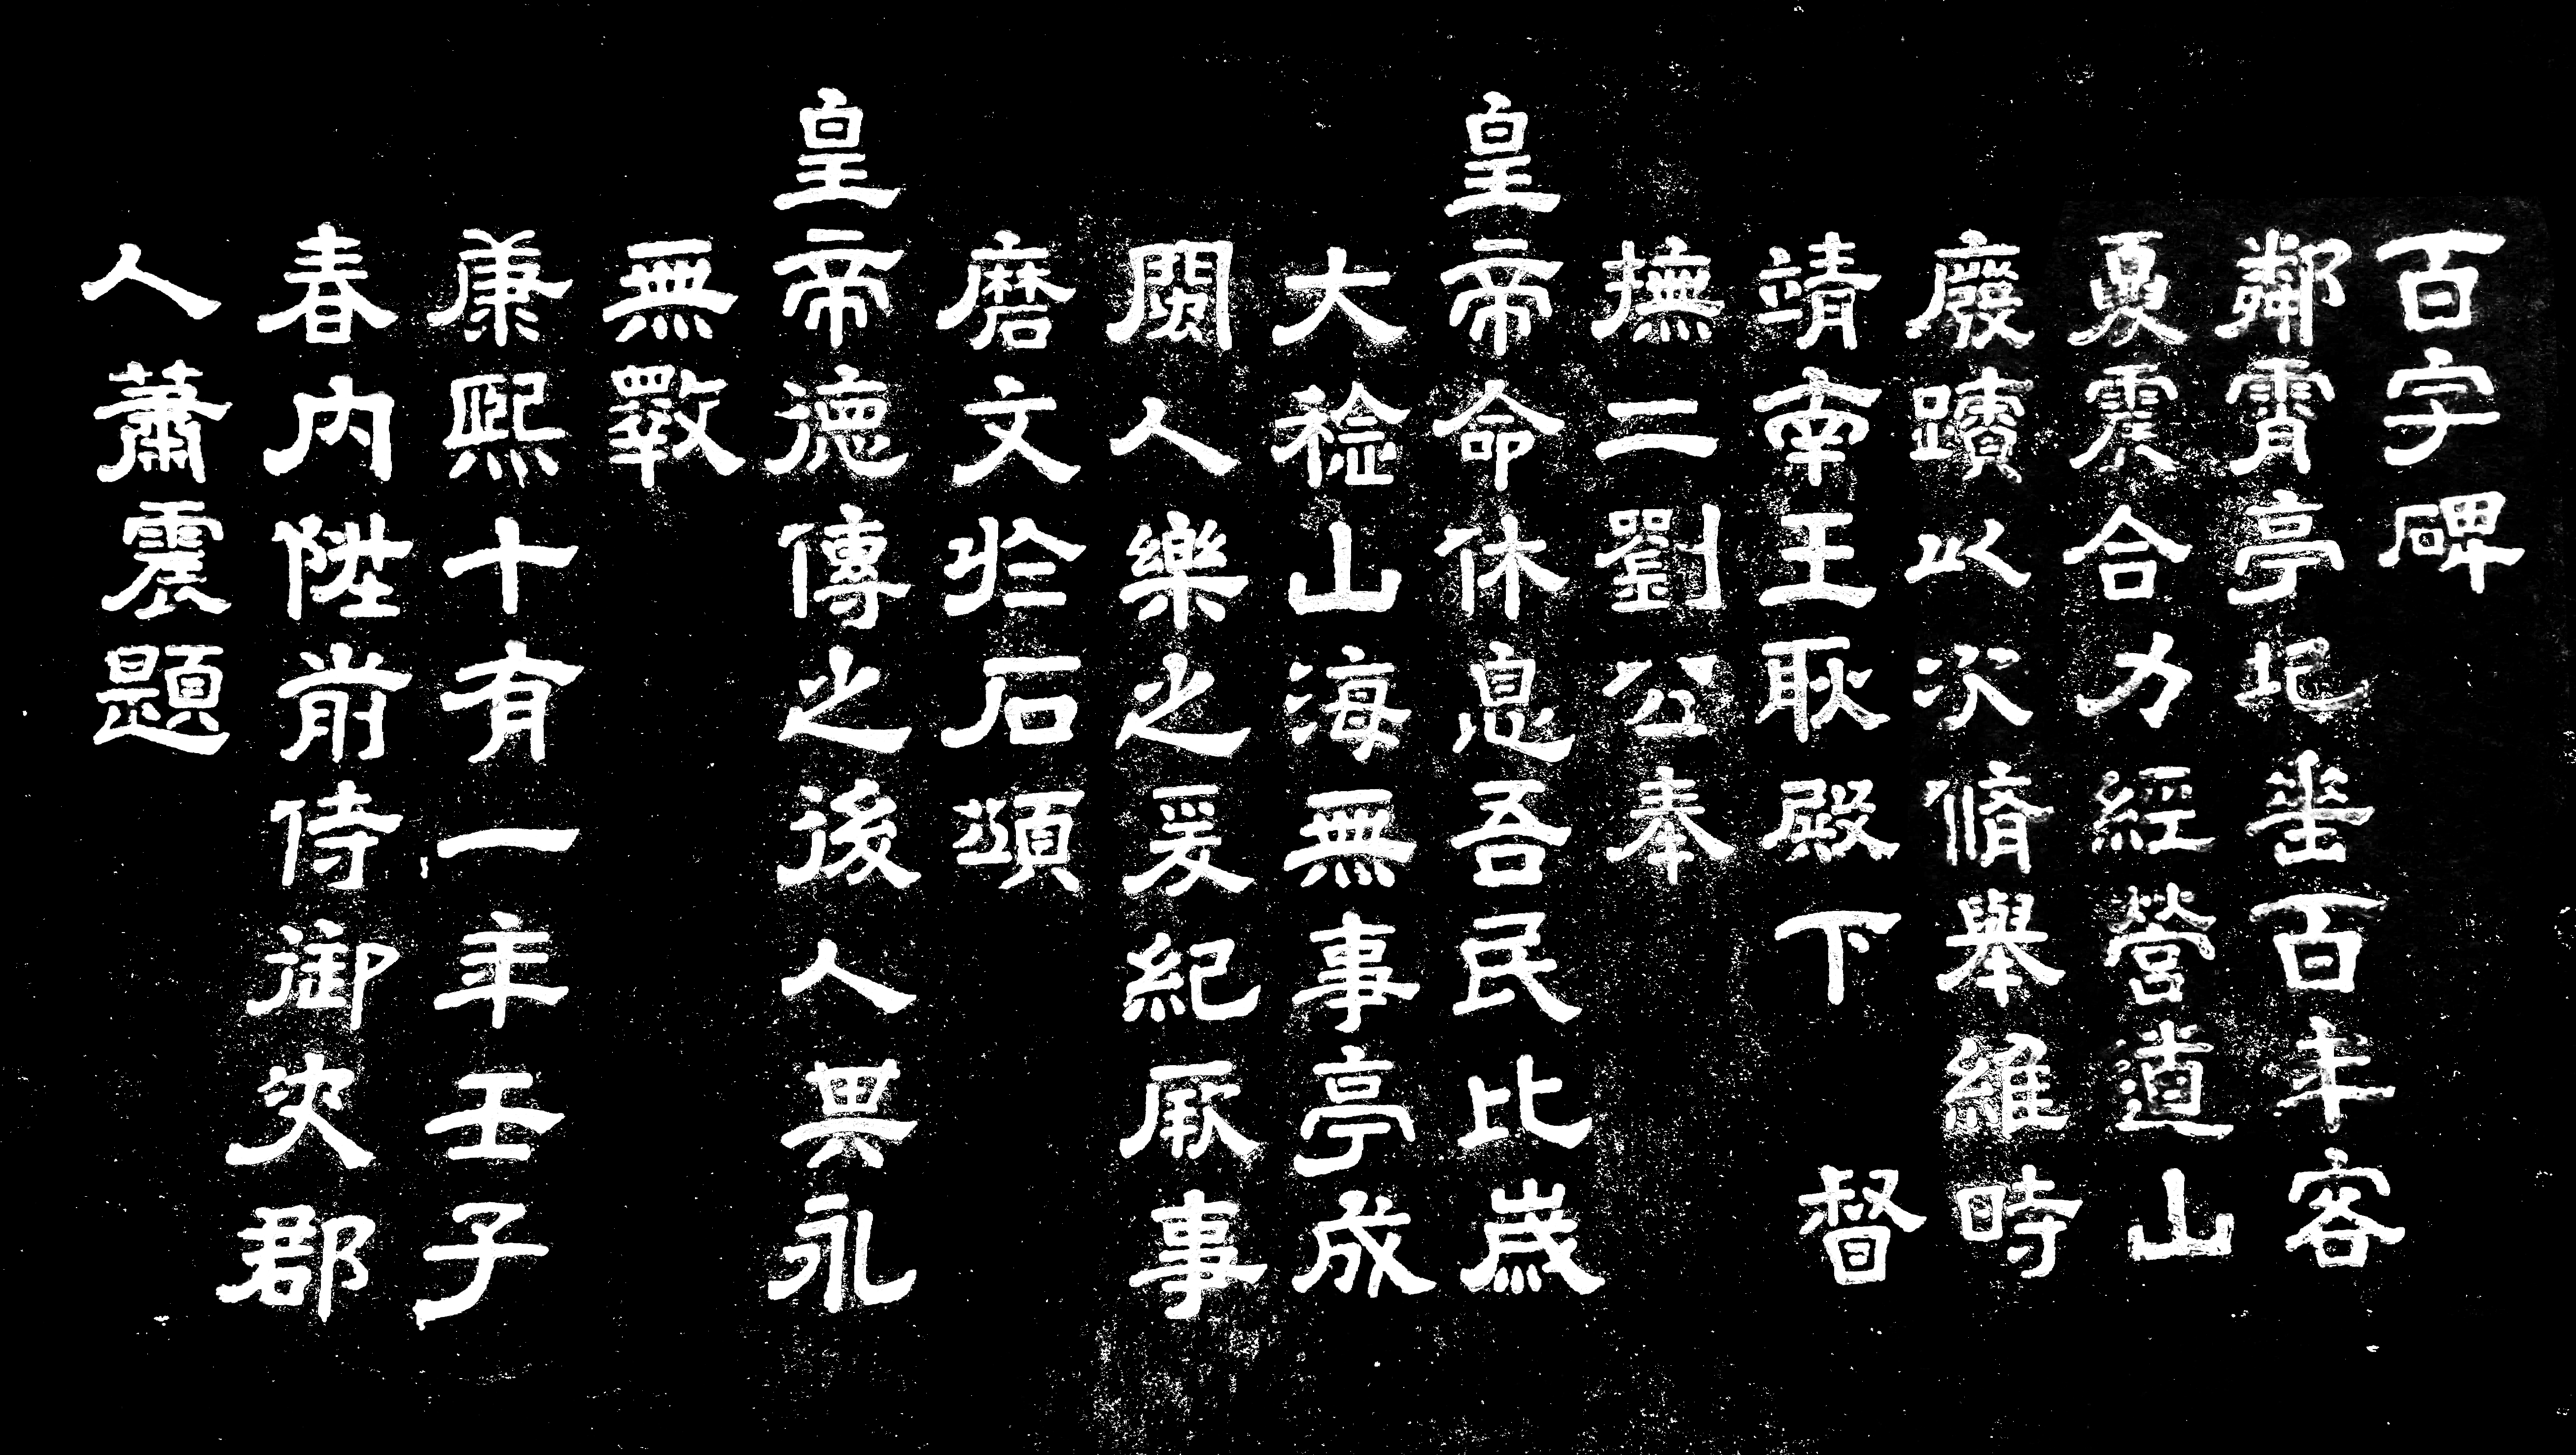 百字碑
鄰霄亭圮垂百年客
夏震合力經營道山
廢蹟以次脩舉維時
靖南王耿殿下 督
撫二劉公奉
皇帝命休息吾民比歲
大稔山海無事亭成
閩人樂之爰紀厥事
磨文於石頌
皇帝德傳之後人畀永
無斁
康熙十有一年壬子
春內陞前侍御史郡
人蕭震題